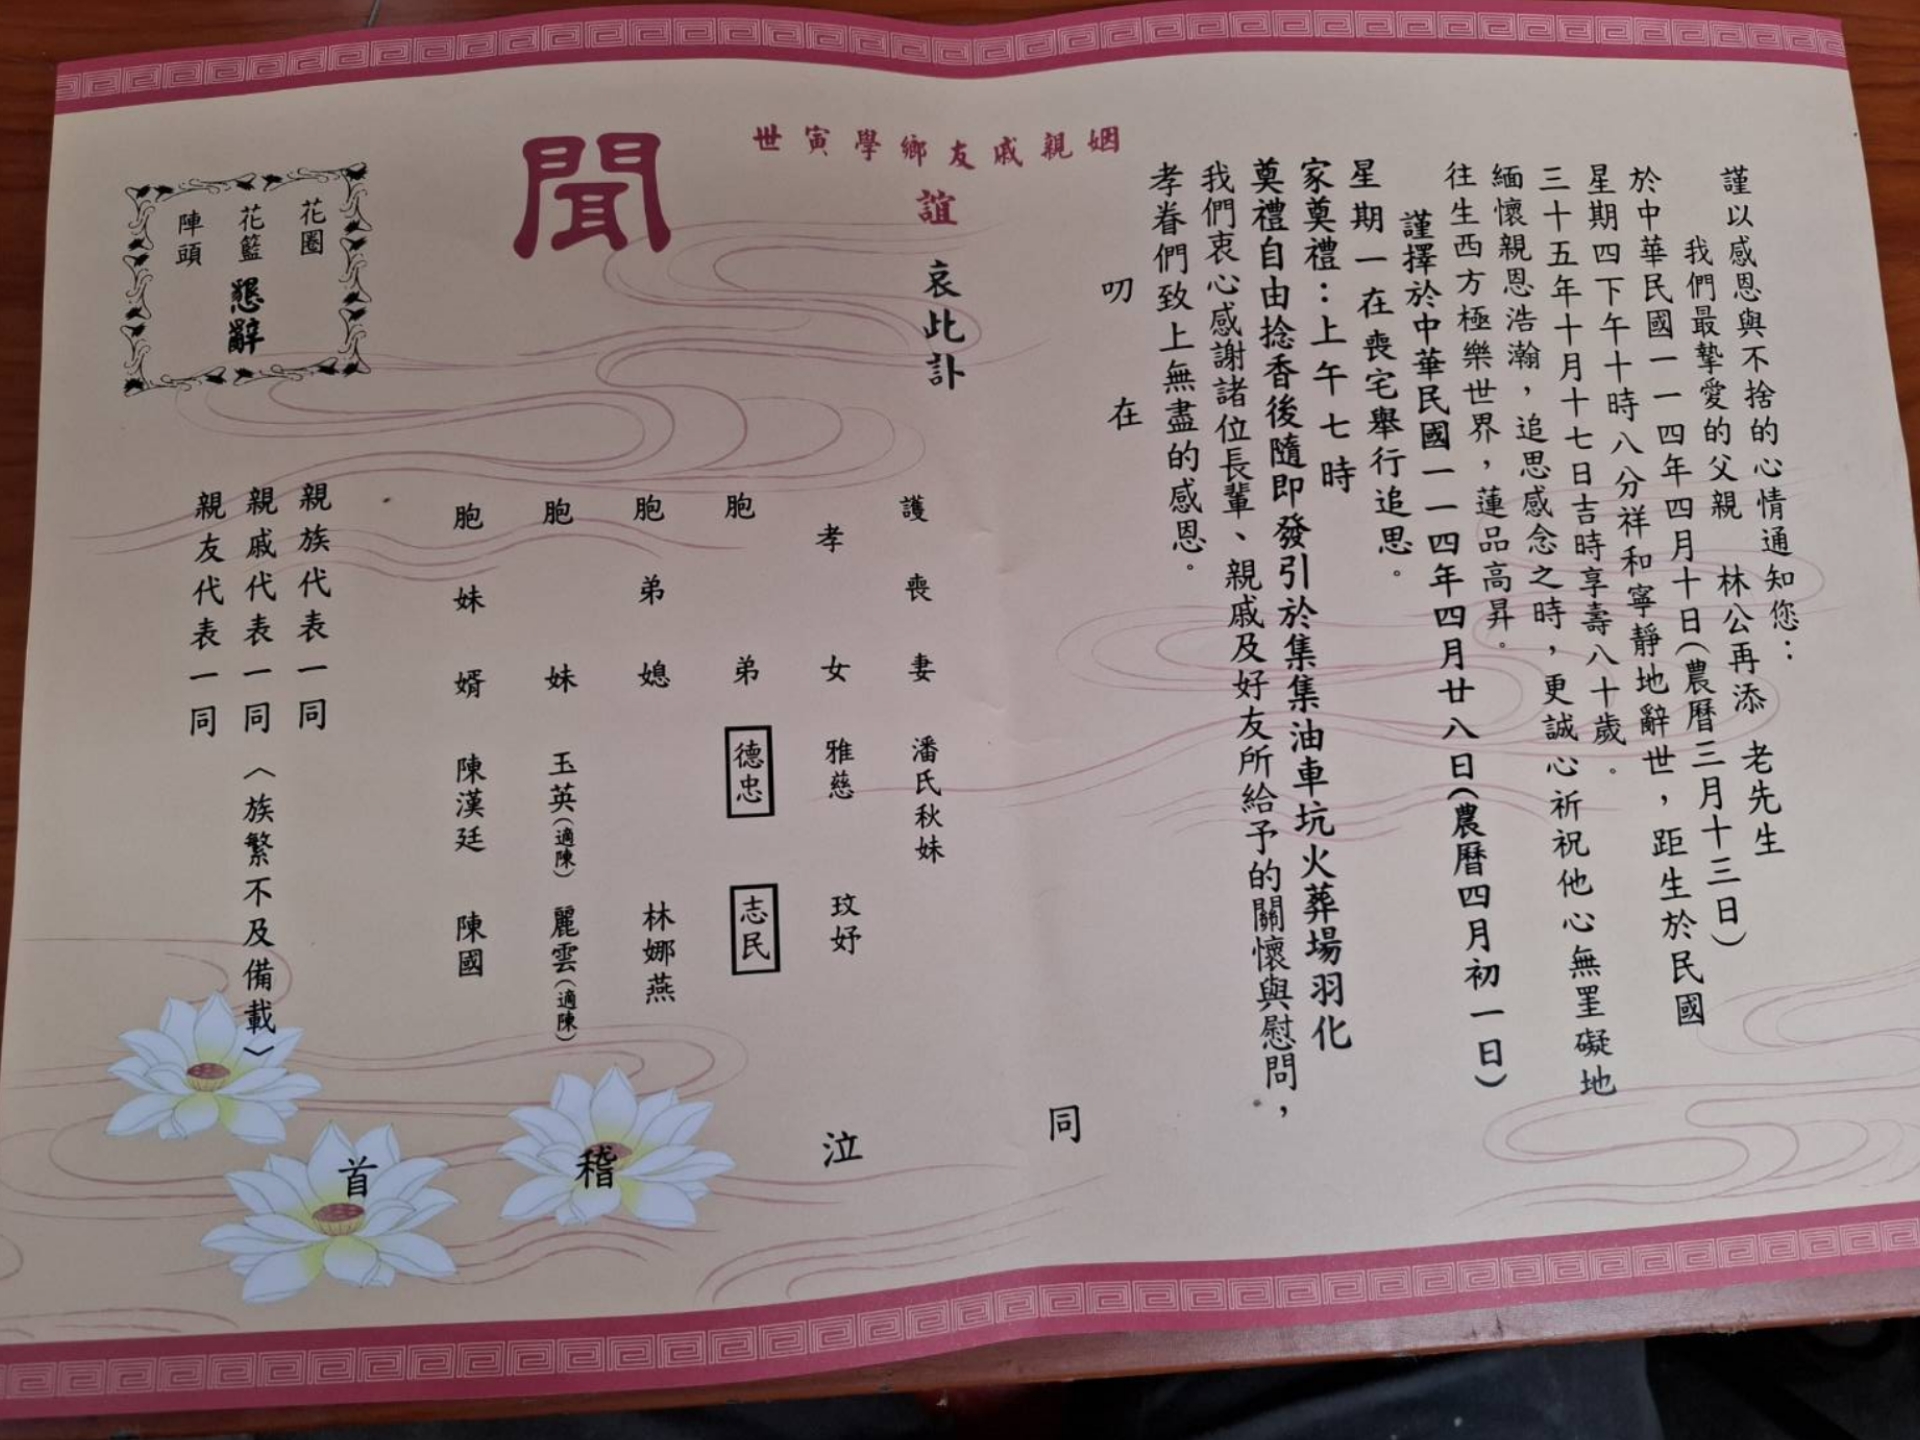 謹以感恩與不捨的心情通知您：
我們最摯愛的父親　林公再添　老先生
於中華民國一一四年四月十日(農曆三月十三日)
星期四下午十時八分祥和寧靜地辭世，距生於民國
三十五年十月十七日吉時享壽八十歲。
緬懷親恩浩瀚，追思感念之時，更誠心祈祝他心無罣礙地
往生西方極樂世界，蓮品高昇。
謹擇於中華民國一一四年四月廿八日(農曆四月初一日)
星期一在喪宅舉行追思。
家奠禮：上午七時
奠禮自由捻香後隨即發引於集集油車坑火葬場羽化
我們衷心感謝諸位長輩、親戚及好友所給予的關懷與慰問，
孝眷們致上無盡的感恩。
叨　在
姻親戚友鄉學寅世
誼　哀此訃
聞
護喪妻　潘氏秋妹
孝女　雅慈　玟妤
胞弟　德忠　志民
胞弟媳　林娜燕
胞妹　玉英(適陳)　麗雲(適陳)
胞妹婿　陳漢廷　陳國
親族代表一同
親戚代表一同〈族繁不及備載〉
親友代表一同
同　泣　稽　首
花圈
花籃　懇辭
陣頭